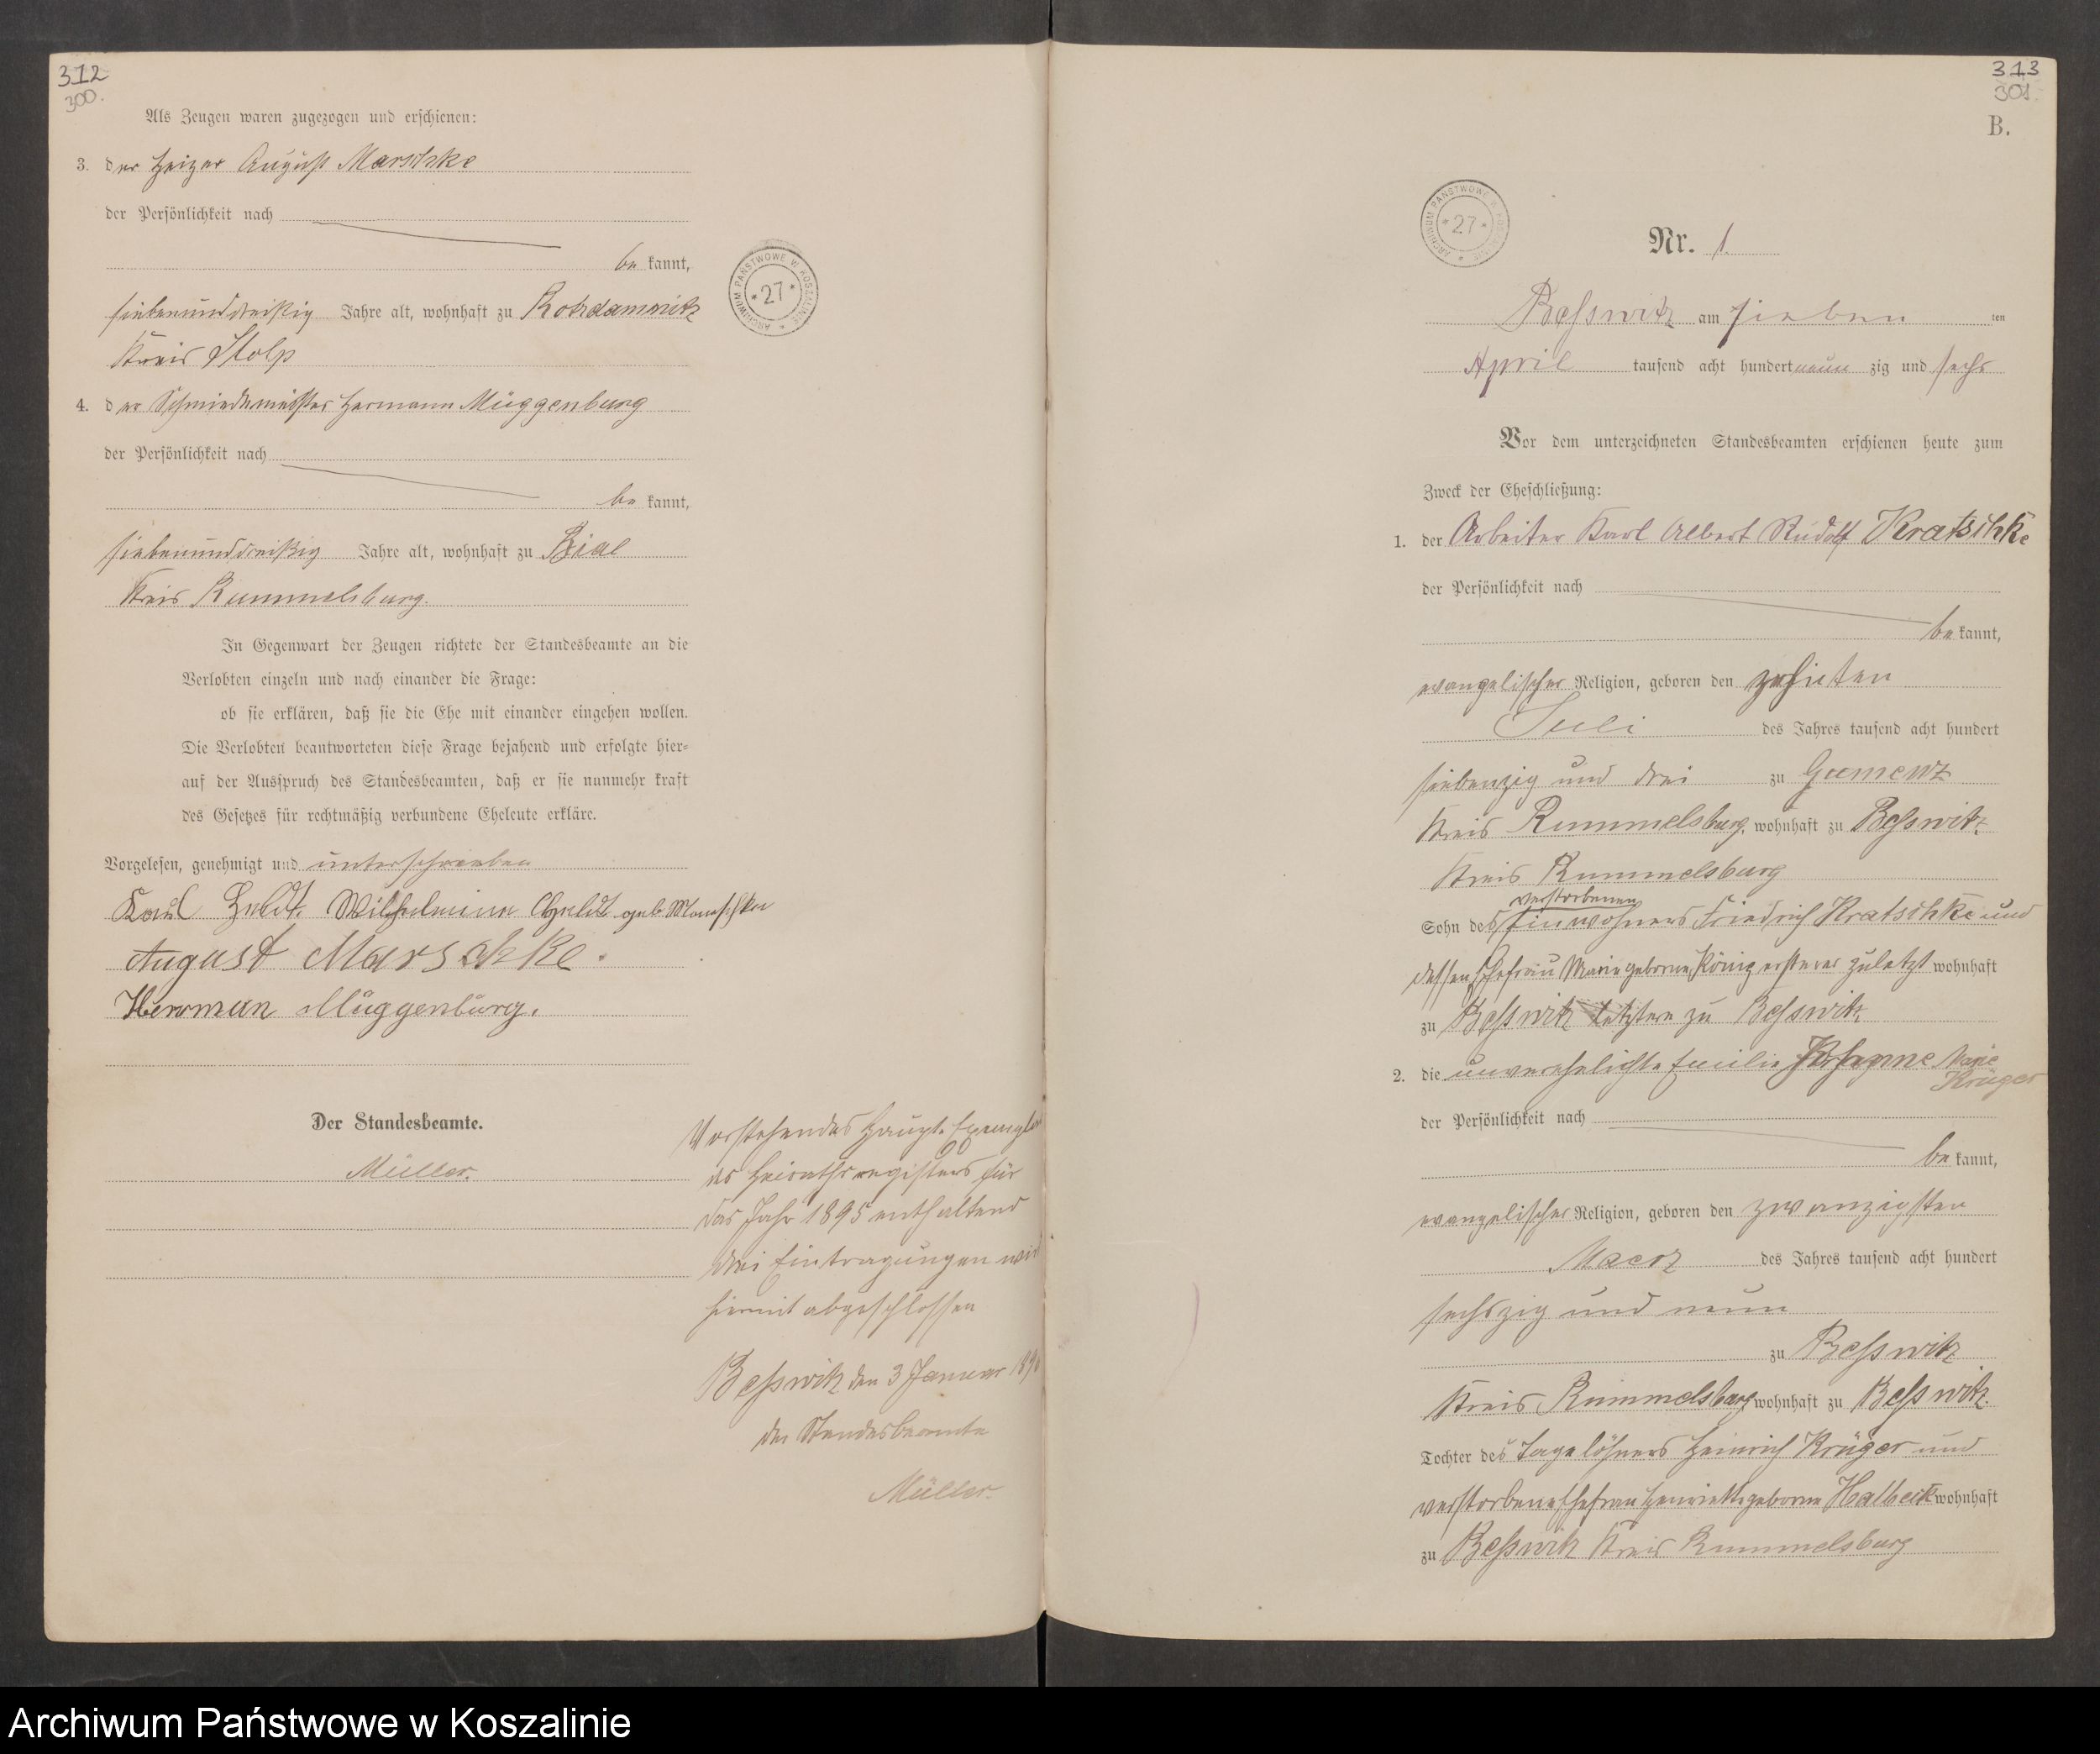 312
300.
Als Zeugen waren zugezogen und erschienen:
3. der Heizer August Marschke
der Persönlichkeit nach
be kannt,
siebenunddreißig Jahre alt, wohnhaft zu
Kreis Stolp
4. der Schmiedemeister Hermann Müggenburg
der Persönlichkeit nach
be kannt,
siebenunddreißig Jahre alt, wohnhaft zu Bial
Kreis Rummelsburg.
In Gegenwart der Zeugen richtete der Standesbeamte an die
Verlobten einzeln und nach einander die Frage:
ob sie erklären, daß sie die Ehe mit einander eingehen wollen.
Die Verlobten beantworteten diese Frage bejahend und erfolgte hier-
auf der Ausspruch des Standesbeamten, daß er sie nunmehr kraft
des Gesetzes für rechtmäßig verbundene Eheleute erkläre.
Vorgelesen, genehmigt und unterschrieben
Karl Wilhelmine geb Marschke
August Marschke.
Herrman Müggenburg.
Der Standesbeamte.
Müller.
ARCHIWUM PAŃSTWOWE W KOSZALINIE * 27 *
Vorstehendes Haupt-Exemplar
des Heirathsregisters für
das Jahr 1895 enthaltend
drei Eintragungen wird
hiermit abgeschlossen
Beßwitz den 3 Januar 1896
der Standesbeamte
Müller.
313
301
B.
ARCHIWUM PAŃSTWOWE W KOSZALINIE * 27 *
Nr. 1.
Beßwitz am sieben ten
April tausend acht hundert neun zig und sechs
Vor dem unterzeichneten Standesbeamten erschienen heute zum
Zweck der Eheschließung:
1. der Arbeiter Karl Albert Rudolf Kratschke
der Persönlichkeit nach
be kannt,
evangelischer Religion, geboren den zehnten
Juli des Jahres tausend acht hundert
siebenzig und drei zu Gumenz
Kreis Rummelsburg, wohnhaft zu Beßwitz
Kreis Rummelsburg
verstorbenen
Sohn des Einwohners Friedrich Kratschke und
dessen Ehefrau Marie geborne König ersterer zuletzt wohnhaft
zu Beßwitz letztere zu Beßwitz
2. die unverehelichte Emilie Johanne Marie
Krüger
der Persönlichkeit nach
be kannt,
evangelischer Religion, geboren den zwanzigsten
Maerz des Jahres tausend acht hundert
sechszig und neun
zu Beßwitz
Kreis Rummelsburg wohnhaft zu Beßwitz
Tochter des Tagelöhners Heinrich Krüger und
verstorbene Ehefrau Henriette geborne Halbeck wohnhaft
zu Beßwitz Kreis Rummelsburg
Archiwum Państwowe w Koszalinie